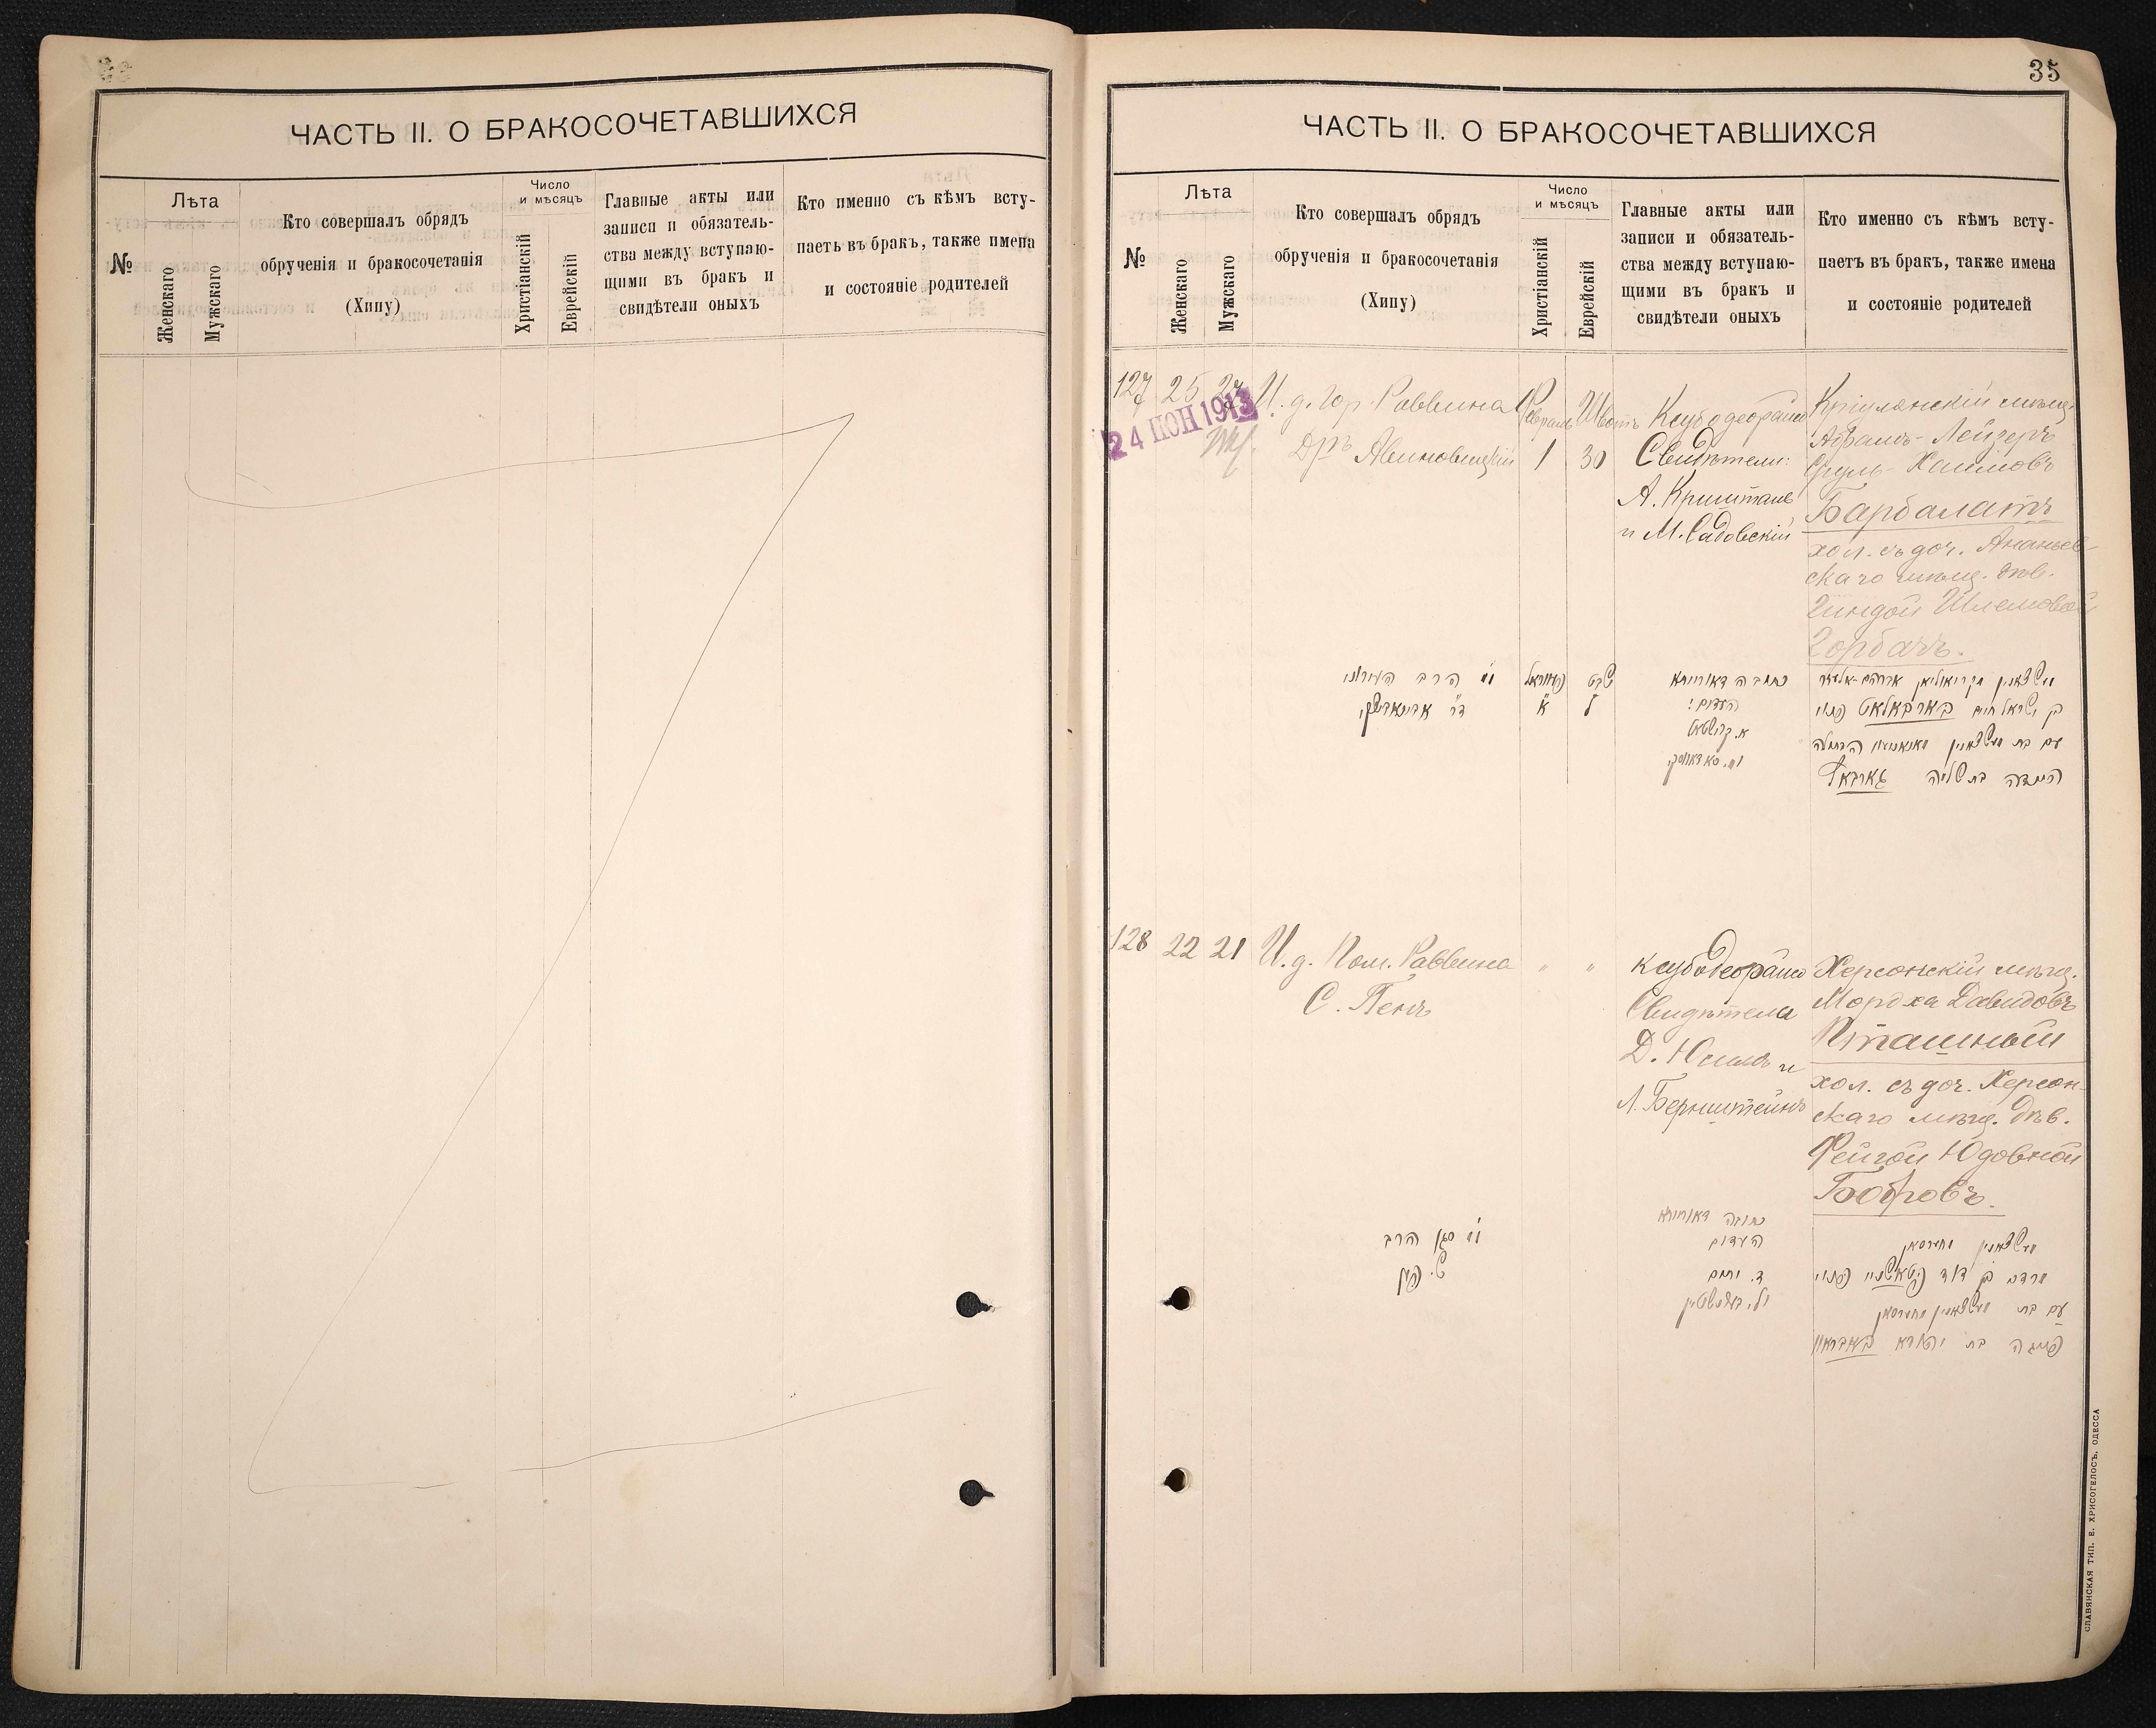 ЧАСТЬ II. О БРАКОСОЧЕТАВШИХСЯ
№
Лѣта
Женскаго
Мужскаго
Кто совершалъ обрядъ
обрученія и бракосочетанія
(Хипу)
Число
и мѣсяцъ
Христіанскій
Еврейскій
Главные акты или
записи и обязатель-
ства между вступаю-
щими въ бракъ и
свидѣтели оныхъ
Кто именно съ кѣмъ всту-
паетъ въ бракъ, также имена
и состояніе родителей
35
ЧАСТЬ II. О БРАКОСОЧЕТАВШИХСЯ
№
Лѣта
Женскаго
Мужскаго
Кто совершалъ обрядъ
обрученія и бракосочетанія
(Хипу)
Число
и мѣсяцъ
Христіанскій
Еврейскій
Главные акты или
записи и обязатель-
ства между вступаю-
щими въ бракъ и
свидѣтели оныхъ
Кто именно съ кѣмъ всту-
паетъ въ бракъ, также имена
и состояніе родителей
127 25 27
24 ІЮН 1913
И. д. Гор. Раввина
Дръ Авиновицкій
Февраль
1
Шватъ
30
Ксубодеорайсо
Свидѣтели:
А. Криштале
и М. Садовскій
Кріулянскій мѣщ.
Абрамъ-Лейзеръ
Сруль-Хаимовъ
Барбалатъ
хол. съ доч. Ананьев-
скаго мѣщ. дѣв.
Гиндой Шлемовой
Горбачъ.
הרב העירוני
פֿעווראל
א
שבט
ל
כתובה דאורייתא
העדים:
בן ישראל חיים בארבאלאט פנוי
128 22 21
И. д. Пом. Раввина
С. Пенъ
" "
Ксубодеорайсо
Свидѣтели
Д. Юхимъ и
Л. Бернштейнъ
Херсонскій мѣщ.
Мордха Давидовъ
Пташный
хол. съ доч. Херсон-
скаго мѣщ. дѣв.
Фейгой Юдовной
Бобровъ.
סגן הרב
ש. פען
כתובה דאורייתא
העדים
פייגה בת יהודא באבראוו
СЛАВЯНСКАЯ ТИП. Е. ХРИСОГЕЛОСЪ, ОДЕССА